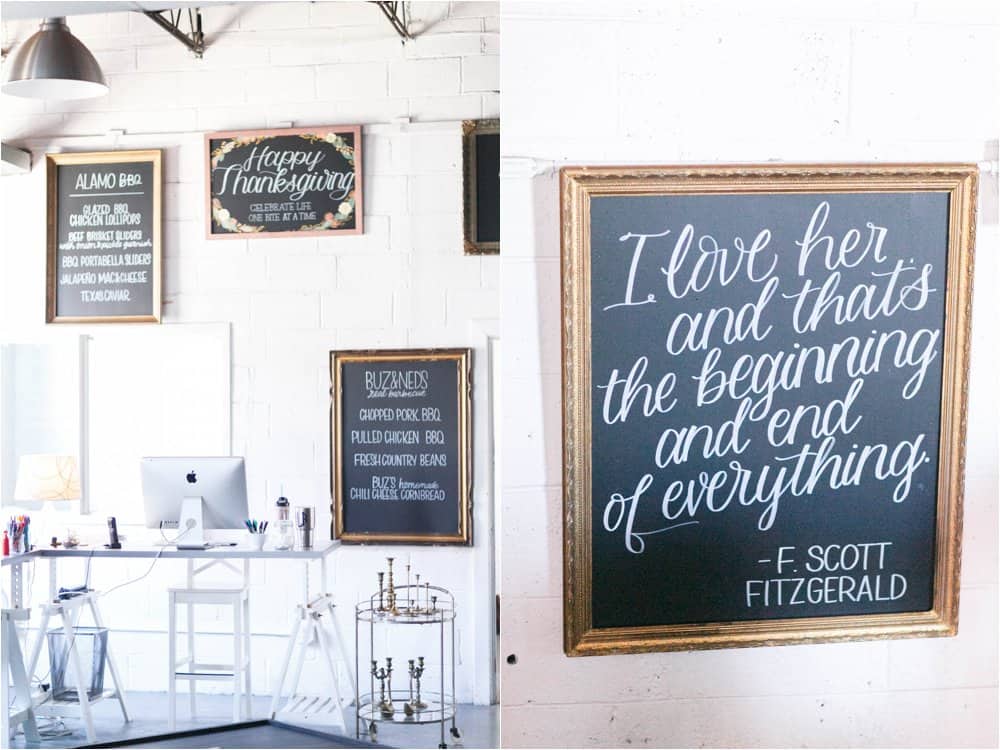 ALAMO BBQ
GLAZED BBQ
CHICKEN LOLLIPOPS
BEEF BRISKET SLIDERS
with onion & pickle garnish
BBQ PORTABELLA SLIDERS
JALAPEÑO MAC & CHEESE
TEXAS CAVIAR
Happy
Thanksgiving
CELEBRATE LIFE
ONE BITE AT A TIME
BUZ & NED'S
real barbecue
CHOPPED PORK BBQ
PULLED CHICKEN BBQ
FRESH COUNTRY BEANS
BUZ'S homemade
CHILI CHEESE CORNBREAD
I love her
and that's
the beginning
and end
of everything.
- F. SCOTT
FITZGERALD